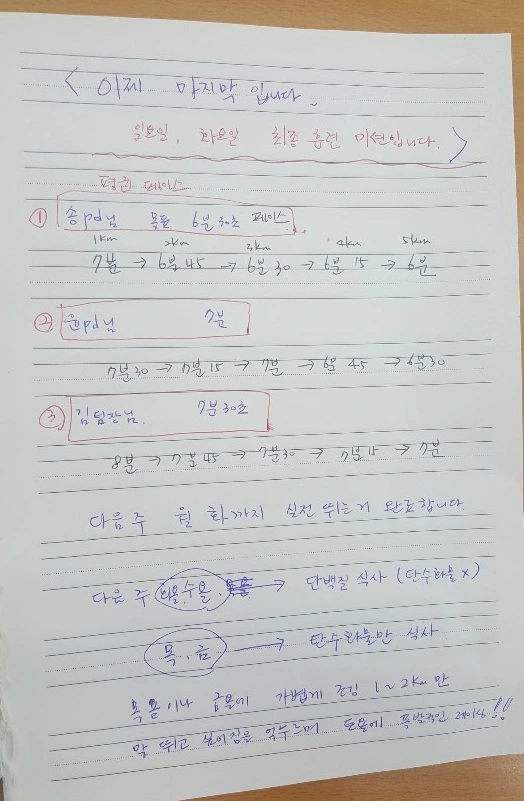 < 이제 마지막 입니다.
일요일, 화요일 최종 훈련 미션입니다. >
평균 페이스
① 송pd님 목표 6분 30초 페이스
1km 2km 3km 4km 5km
7분 → 6분 45 → 6분 30 → 6분 15 → 6분
② 윤pd님 7분
7분30 → 7분 15 → 7분 → 6분 45 → 6분 30
③ 김팀장님. 7분 30초
8분 → 7분 45 → 7분30 → 7분 15 → 7분
다음 주 월 화까지 실전 뛰는거 완료합니다.
다음 주 화요, 수요. → 단백질 식사 (탄수화물 X)
목, 금 → 탄수화물만 식사
목요이나 금요에 가볍게 조깅 1~2km만
막 뛰고 싶어짐을 억누르며 토요에 폭발적인 레이싱!!